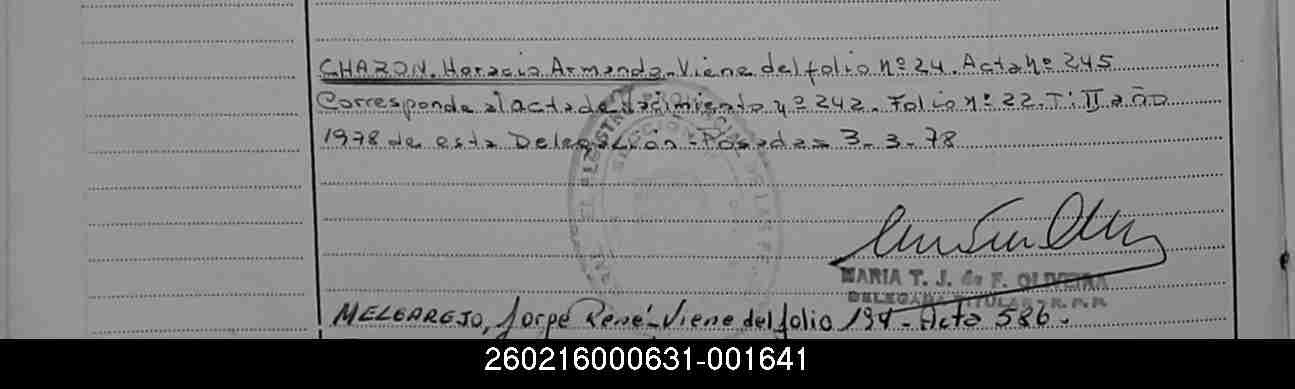 CHAZON. Horacio Armando - Viene del folio Nº 24. Acta Nº 245
Corresponde al acta de nacimiento Nº 242. Folio Nº 22. Tº II año
1978 de esta Delegación - Posadas 3-3-78
MARIA T. J. de F. OLIVEIRA
DELEGADA TITULAR - R.P.P.
MELGAREJO, Jorge René - Viene del folio 194 - Acta 586.
260216000631-001641